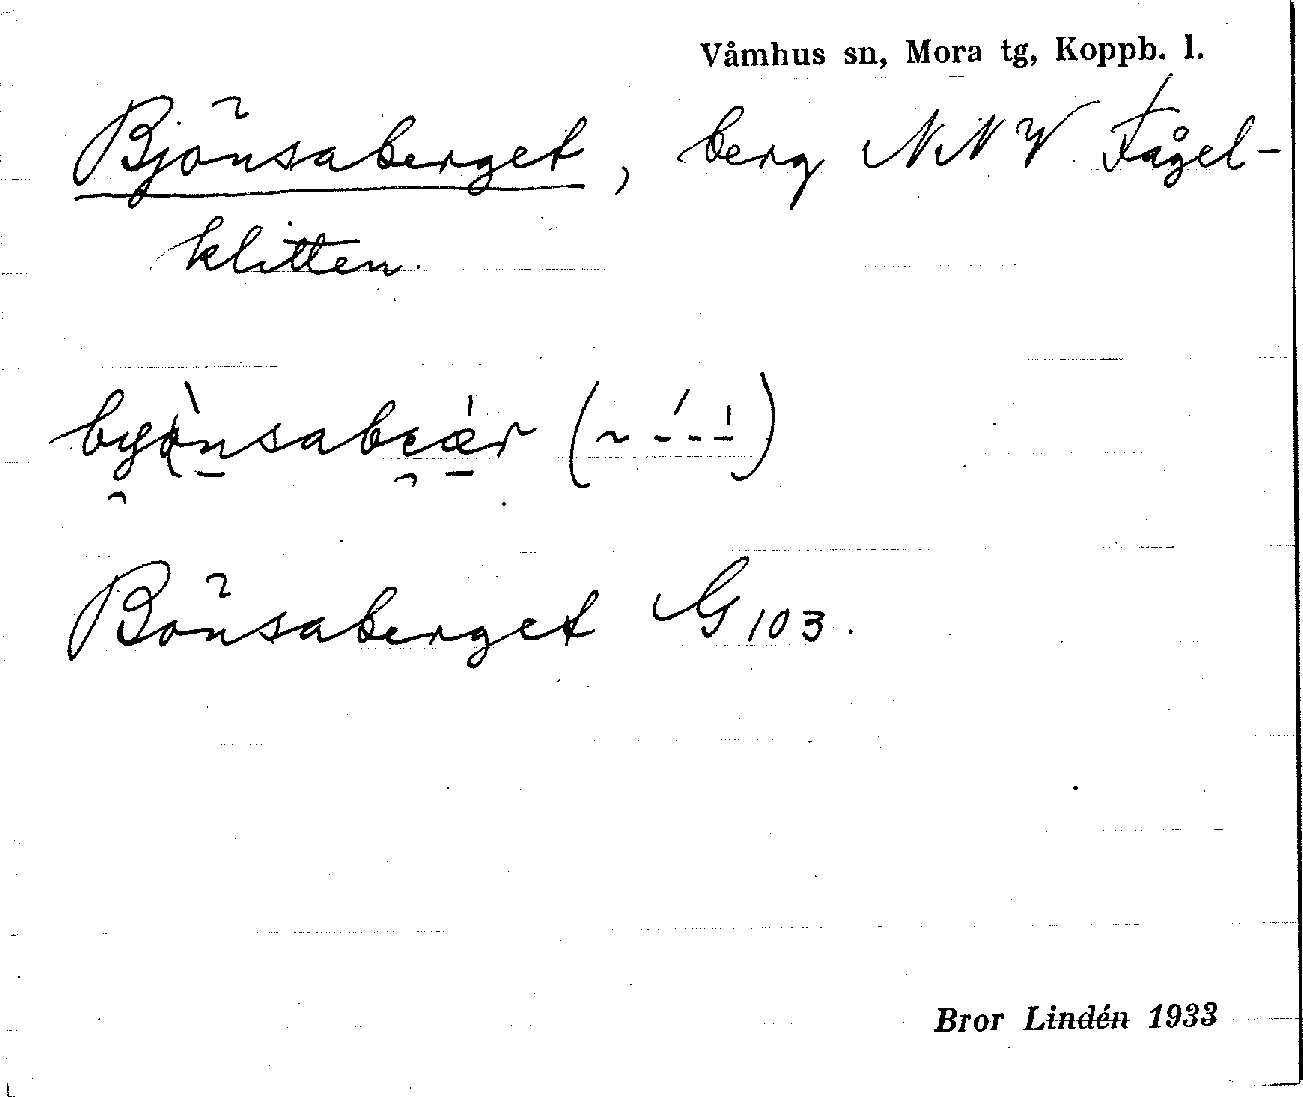 Våmhus sn, Mora tg, Koppb. l.
Bjönsaberget, berg NNV Fågel-
klitten.
Bönsaberget G 103.
Bror Lindén 1933